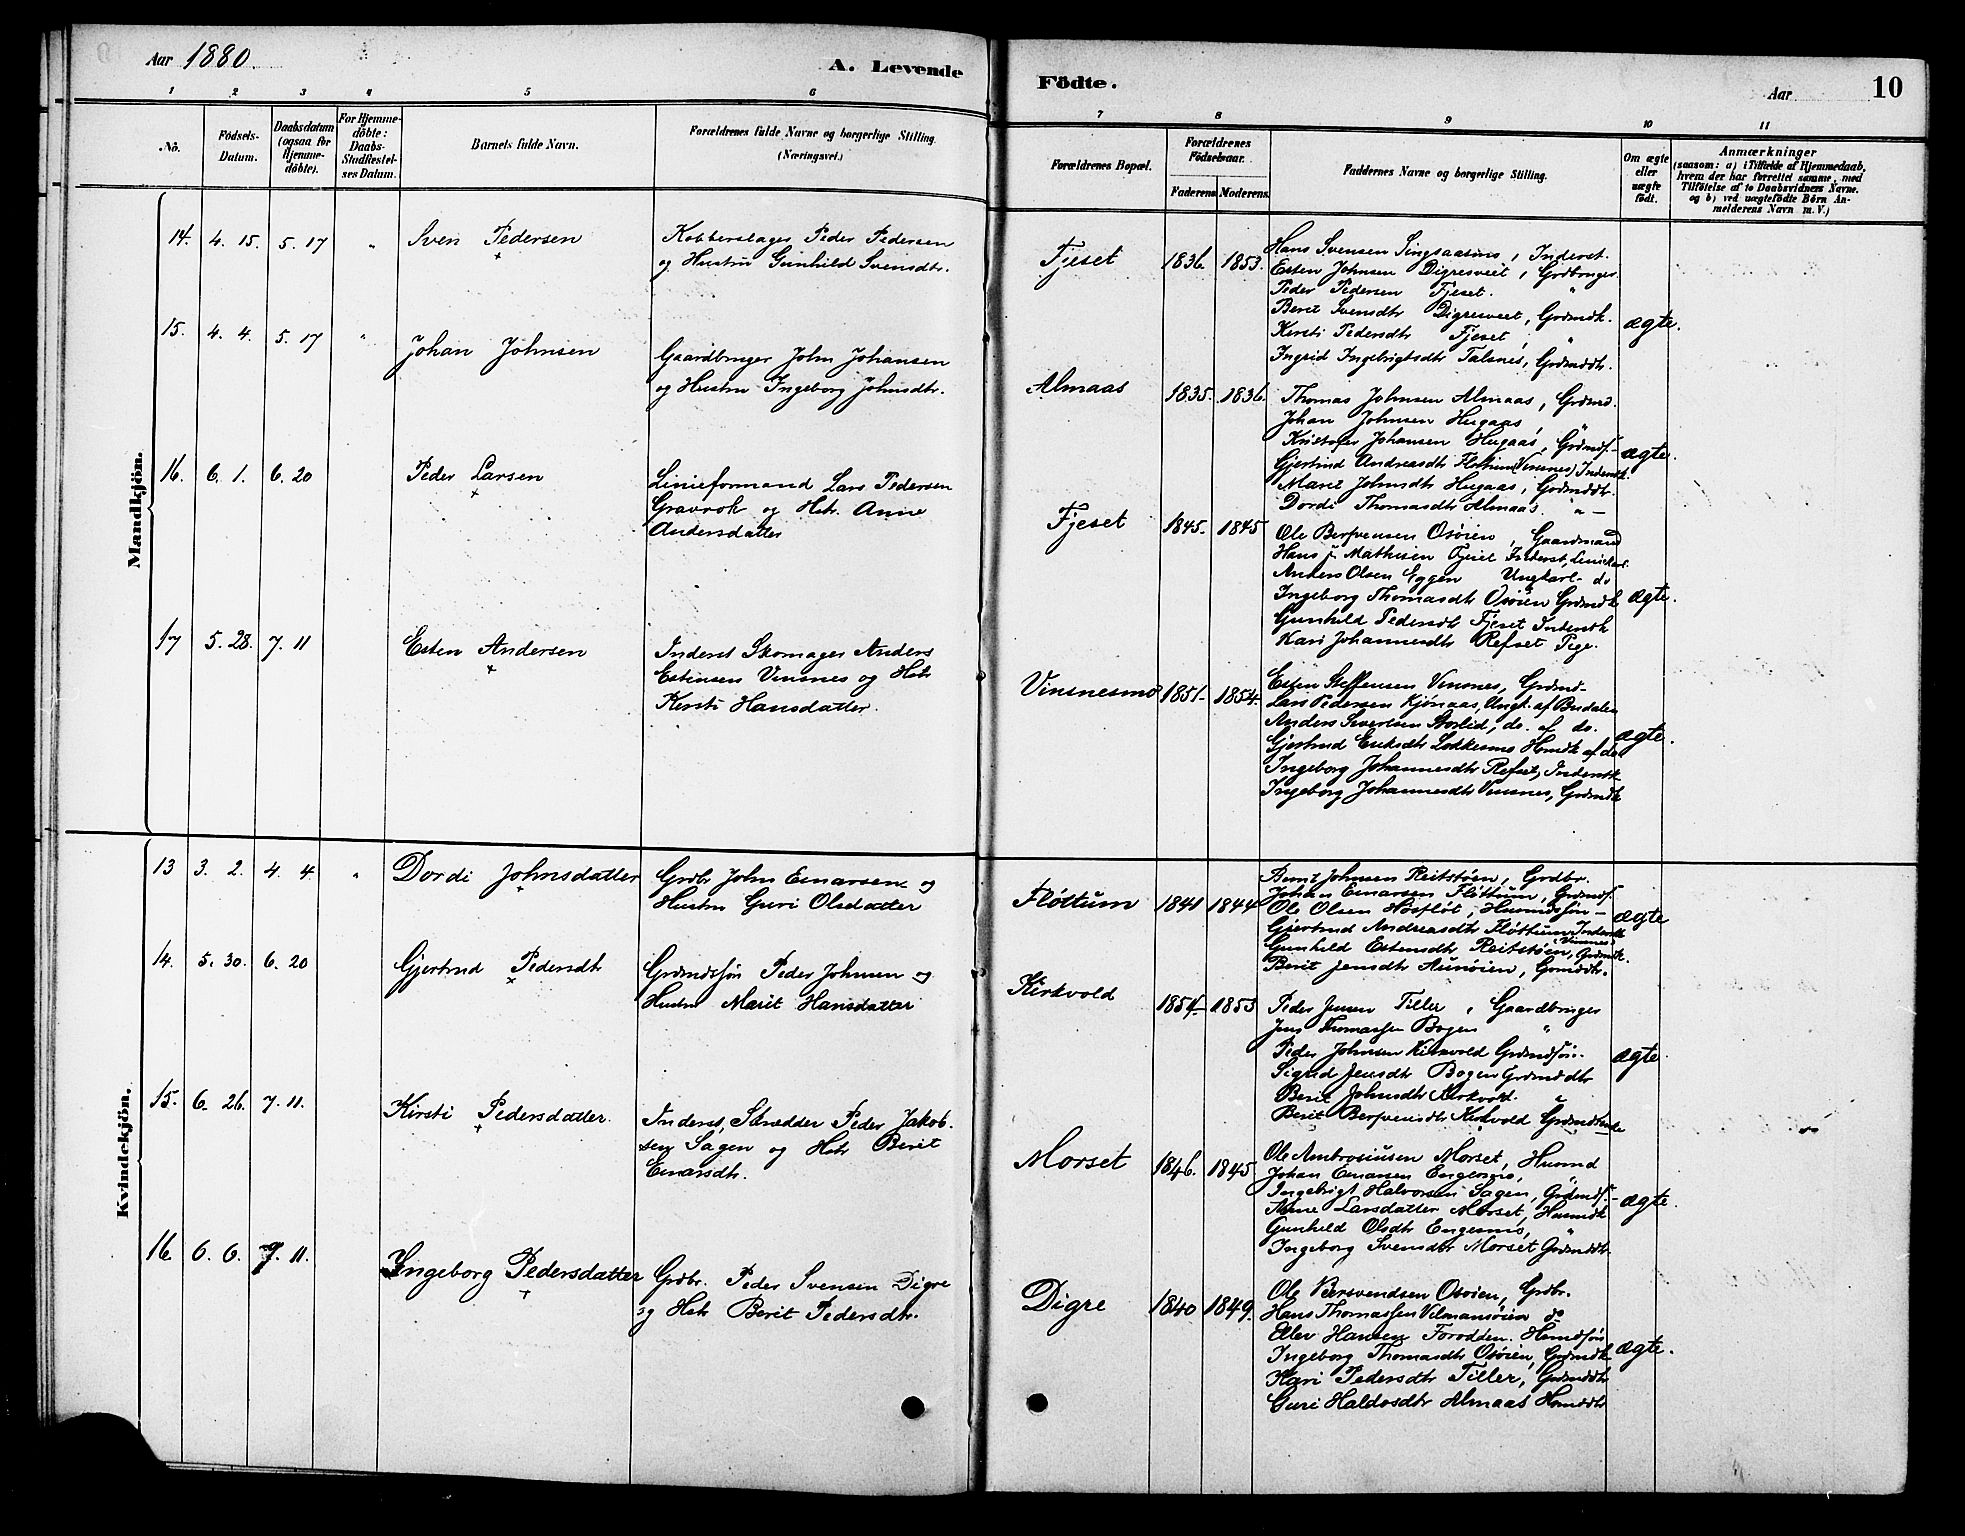 Aar 1880.
A. Levende Födte.
Aar
10
1 2 3 4 5 6 7 8 9 10 11
No.
Fødsels-Datum.
Daabsdatum (ogsaa for Hjemme-döbte).
For Hjemme-döbte: Daabs-Stadfæstel-ses Datum.
Barnets fulde Navn.
Forældrenes fulde Navne og borgerlige Stilling. (Næringsvei.)
Forældrenes Bopæl.
Forældrenes Födselsaar.
Faderens. Moderens.
Faddernes Navne og borgerlige Stilling.
Om ægte eller uægte födt.
Anmærkninger
(saasom: a) i Tilfælde af Hjemmedaab,
hvem der har forrettet samme, med
Tilföielse af to Daabsvidners Navne.
og b) ved uægtefödte Börn An-
melderens Navn m. V.)
Mandkjön.
14. 4. 15. 5. 17 " Sven Pedersen
Kobberslager Peder Pedersen
og Hustru Gunhild Svensdtr.
Fjeset 1836. 1853.
Hans Svensen Singsaasmo, Inderst.
Esten Johnsen Digresveet, Grdbruger
Peder Pedersen Fjeset. "
Berit Svensdtr Digresveet, Grdmdk.
Kirsti Pedersdtr Fjeset, "
Ingrid Ingebrigtsdtr Talsnes, Grdmddtr.
ægte.
15. 4. 4. 5. 17 " Johan Johnsen
Gaardbruger John Johansen
og Hustru Ingeborg Johnsdtr.
Almaas 1835. 1836.
Thomas Johnsen Almaas, Grdmd.
Johan Johnsen Hugaas, "
Kristofer Johansen Hugaas, Grdmdsf.
Gjertrud Andreasdtr Flottum (Vinsnes) Inderstk
Marit Johnsdtr Hugaas, Grdmddtr.
Dordi Thomasdtr Almaas. " -
ægte.
16. 6. 1. 6. 20 Peder Larsen
Linieformand Lars Pedersen
Gravrok og Hstr. Anne
Andersdatter
Fjeset 1845. 1845
Ole Bersvensen Osøien, Gaardmand
Hans J Mathisen Fjeset Inderst, Liniekarl.
Anders Olsen Eggen Ungkarl- do
Ingeborg Thomasdtr Osøien Grdmdk
Gunhild Pedersdt Fjeset Inderstk
Kari Johannesdtr Refset Pige.
ægte.
17 5. 28. 7. 11 Esten Andersen
Inderst Skomager Anders
Estensen Vinsnes og Hstr
Kirsti Hansdatter.
Vinsnesmo 1851- 1854.
Esten Steffensen Vinsnes, Grdmd-
Lars Pedersen Kjönaas, Ungk. af Budalen
Anders Sivertsen Storlid, do. af do.
Gjertrud Eriksdtr Løkkesmo Hsmdk af do
Ingeborg Johannesdtr Refset, Inderstk
Ingeborg Johannesdtr Vinsnes, Grdmdk
ægte.
Kvindekjön.
13 3. 2. 4. 4 " Dordi Johnsdatter
Grdbr John Einarsen og
Hustru Guri Olsdatter
Fløttum 1841 1844
Bernt Johnsen Reitstøen, Grdbr.
Johan Einarsen Fløttum, Grdmdsf.
Ole Olsen Hösflöt, Husmdssøn-
Gjertrud Andreasdtr Fløttum, Inderstk
(Vinsnes)
Gunhild Estensdtr Reitstøen, Grdmdk.
Berit Jensdtr Aunøien, Grmddtr.
ægte
14. 5. 30. 6. 20 Gjertrud Pedersdt
Grdmdsføn Peder Johnsen og
Hustru Marit Hansdatter
Kirkvold 1854- 1853
Peder Jensen Tiller, Gaardbruger
Jens Thomassen Bogen "
Peder Johnsen Kirkvold Grdmdsføn.
Sigrid Jensdtr Bogen Grdmddtr
Berit Johnsdtr Kirkvold. "
Berit Bersvensdtr Kirkvold Grdmdkone
ægte.
15. 6. 26. 7. 11. Kirsti Pedersdatter.
Inderst, Skrædder Peder Jakob-
sen Sagen og Hstr Berit
Einarsdtr.
Morset 1846. 1845
Ole Ambrosiusen Morset, Husmd
Johan Einarsen Engesmo, "
Ingebrigt Halvorsen Sagen, Grdmdsf.
Anne Larsdatter Morset, Husmdk
Gunhild Olsdtr Engesmo, "
Ingeborg Svensdtr Morset Grdmddtr.
ægte.
16 6. 6. 7. 11. Ingeborg Pedersdatter
Grdbr. Peder Svensen Digre
og Hstr Berit Pedersdtr.
Digre 1840 1849.
Ole Bersvendsen Osøien, Grdbr.
Hans Thomassen Vilmansøien do
Eller Hansen Forodden. Hsmdsøn
Ingeborg Thomasdtr Osøien, Grdmdk
Kari Pedersdtr Tiller, Grdmddtr
Guri Haldosdtr Almaas Hsmddtr
ægte.